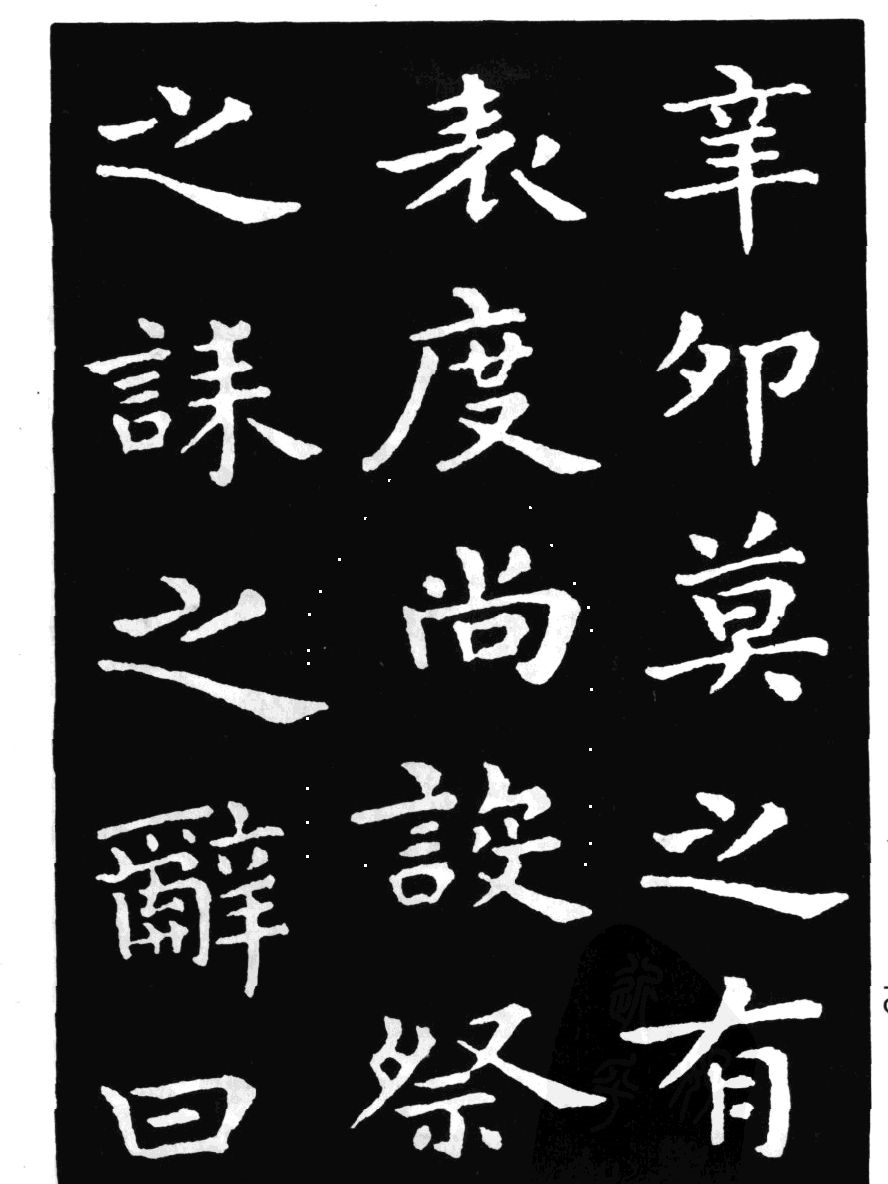 辛卯莫之有
表度尚設祭
之誄之辭曰